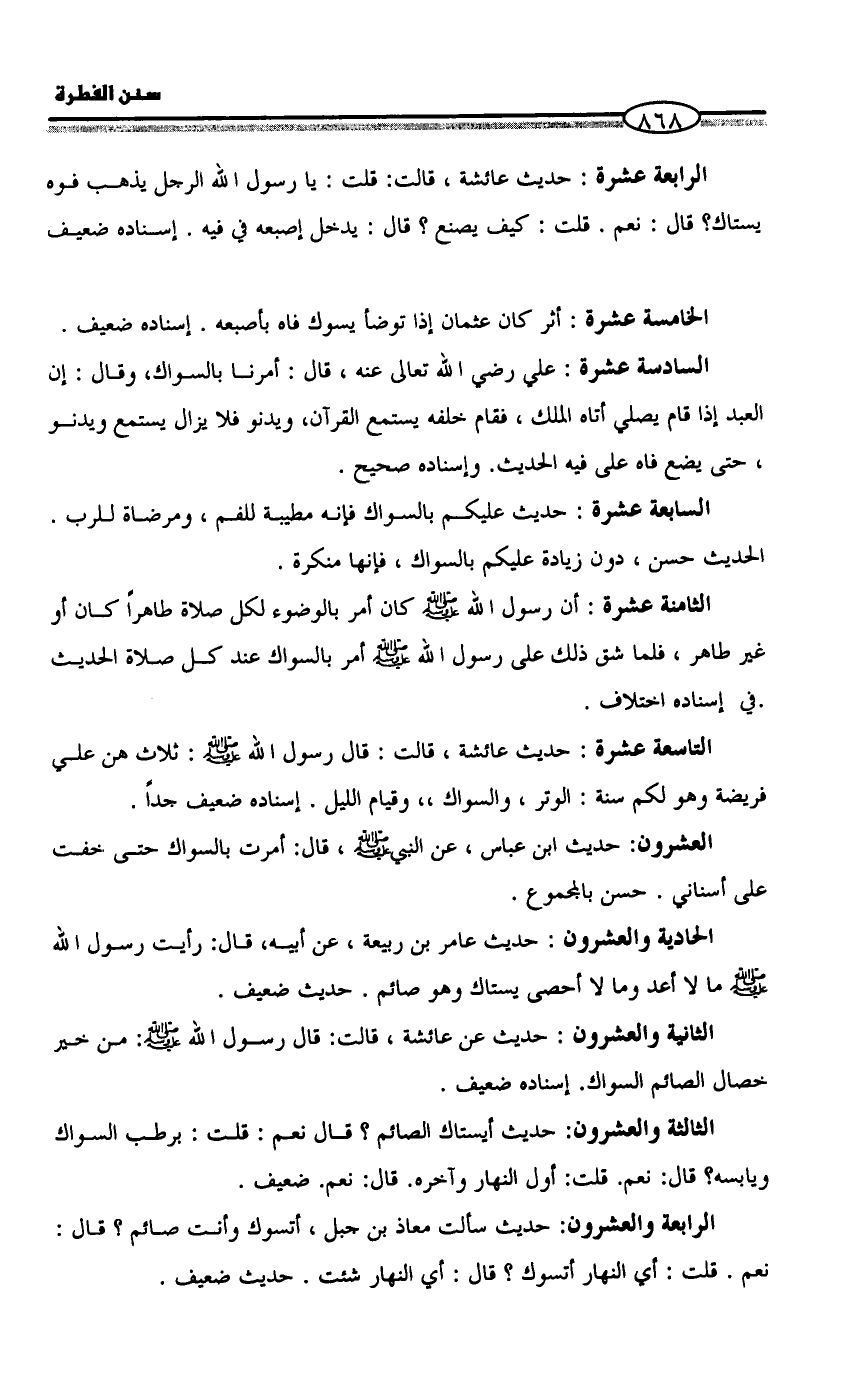 سنن الفطرة
٨٦٨
الرابعة عشرة : حديث عائشة ، قالت: قلت : يا رسول الله الرجل يذهب فوه
يستاك؟ قال : نعم . قلت : كيف يصنع ؟ قال : يدخل إصبعه في فيه . إسناده ضعيف
الخامسة عشرة : أثر كان عثمان إذا توضأ يسوك فاه بأصبعه . إسناده ضعيف .
السادسة عشرة : علي رضي الله تعالى عنه ، قال : أمرنا بالسواك، وقال : إن
العبد إذا قام يصلي أتاه الملك ، فقام خلفه يستمع القرآن، ويدنو فلا يزال يستمع ويدنو
، حتى يضع فاه على فيه الحديث. وإسناده صحيح .
السابعة عشرة : حديث عليكم بالسواك فإنه مطيبة للفم ، ومرضاة للرب .
الحديث حسن ، دون زيادة عليكم بالسواك ، فإنها منكرة .
الثامنة عشرة : أن رسول الله ﷺ كان أمر بالوضوء لكل صلاة طاهراً كان أو
غير طاهر ، فلما شق ذلك على رسول الله ﷺ أمر بالسواك عند كل صلاة الحديث
.في إسناده اختلاف .
التاسعة عشرة : حديث عائشة ، قالت : قال رسول الله ﷺ : ثلاث هن علي
فريضة وهو لكم سنة : الوتر ، والسواك ،، وقيام الليل . إسناده ضعيف جداً .
العشرون: حديث ابن عباس ، عن النبيﷺ ، قال: أمرت بالسواك حتى خفت
على أسناني . حسن بالمجموع .
الحادية والعشرون : حديث عامر بن ربيعة ، عن أبيه، قال: رأيت رسول الله
ﷺ ما لا أعد وما لا أحصى يستاك وهو صائم . حديث ضعيف .
الثانية والعشرون : حديث عن عائشة ، قالت: قال رسول الله ﷺ: من خير
خصال الصائم السواك. إسناده ضعيف .
الثالثة والعشرون: حديث أيستاك الصائم ؟ قال نعم : قلت : برطب السواك
ويابسه؟ قال: نعم. قلت: أول النهار وآخره. قال: نعم. ضعيف .
الرابعة والعشرون: حديث سألت معاذ بن جبل ، أتسوك وأنت صائم ؟ قال :
نعم . قلت : أي النهار أتسوك ؟ قال : أي النهار شئت . حديث ضعيف .